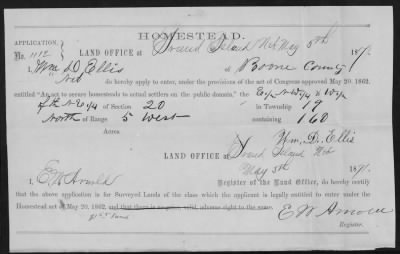 HOMESTEAD.
APPLICATION,
No. 1112
LAND OFFICE at Grand Island Neb May 5th 187
I, Wm D. Ellis of Boone County
Neb do hereby apply to enter, under the provisions of the act of Congress approved May 20, 1862,
entitled "An act to secure homesteads to actual settlers on the public domain," the
of the NW 1/4 of Section 20 in Township 19
North of Range 5 West containing 160
Acres.
Wm. D. Ellis
LAND OFFICE at Grand Island Neb
May 5th 187
I, E. W. Arnold Register of the Land Office, do hereby certify
that the above application is for Surveyed Lands of the class which the applicant is legally entitled to enter under the
Homestead act of May 20, 1862, and that there is no prior, valid, adverse right to the same.
E W Arnold
Register.